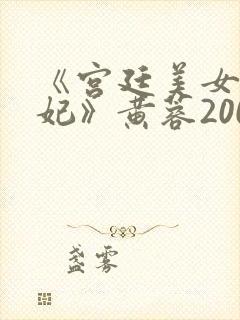 《宫廷美女
妃》黄蓉200
盏雾